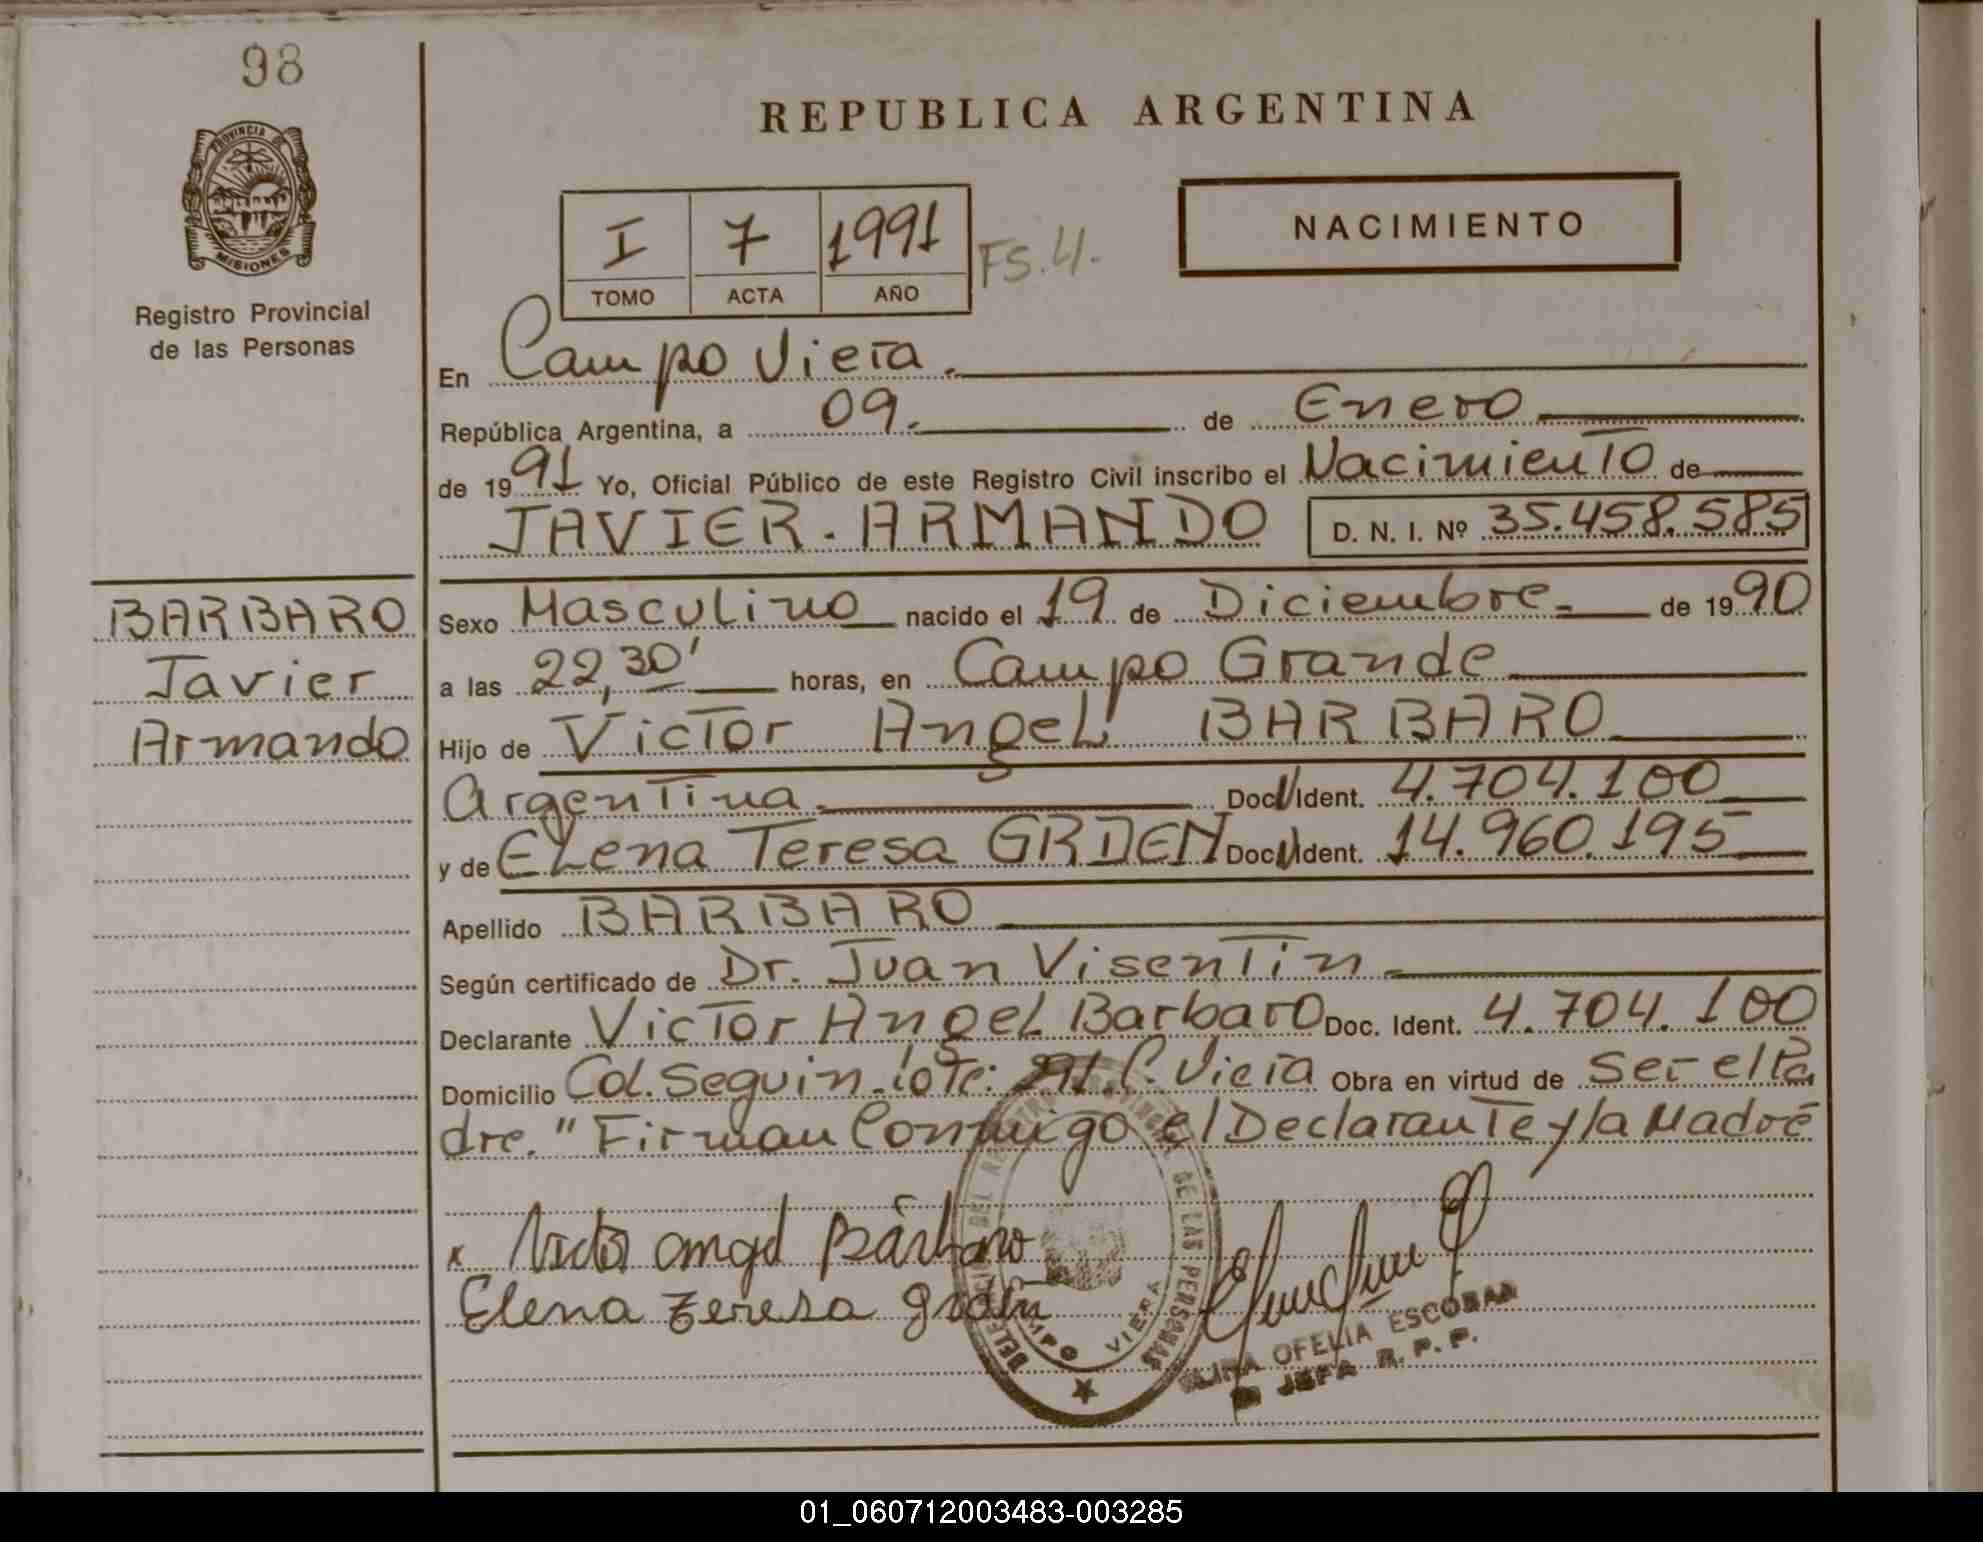 98
REPUBLICA ARGENTINA
PROVINCIA DE
MISIONES
Registro Provincial
de las Personas
I 7 1991 FS.4.
TOMO ACTA AÑO
NACIMIENTO
En Campo Viera.
República Argentina, a 09. de Enero
de 1991 Yo, Oficial Público de este Registro Civil inscribo el Nacimiento de
JAVIER. ARMANDO D. N. I. Nº 35.458.585
BARBARO
Javier
Armando
Sexo Masculino nacido el 19 de Diciembre. de 1990
a las 22,30' horas, en Campo Grande
Hijo de Victor Angel BARBARO
Argentina. Doc. Ident. 4.704.100
y de Elena Teresa GRDEN Doc. Ident. 14.960.195
Apellido BARBARO
Según certificado de Dr. Juan Visentin.
Declarante Victor Angel Barbaro Doc. Ident. 4.704.100
Domicilio Col. Seguin. lote: 291. C. Viera Obra en virtud de ser el Pa
dre. " Firman Conmigo el Declarante y la Madre
x Victor angel Bárbaro
Elena Teresa Grdén
DE LAS PERSONAS
CAMPO VIERA
OFELIA ESCOBAR
JEFA R. P. P.
01_060712003483-003285